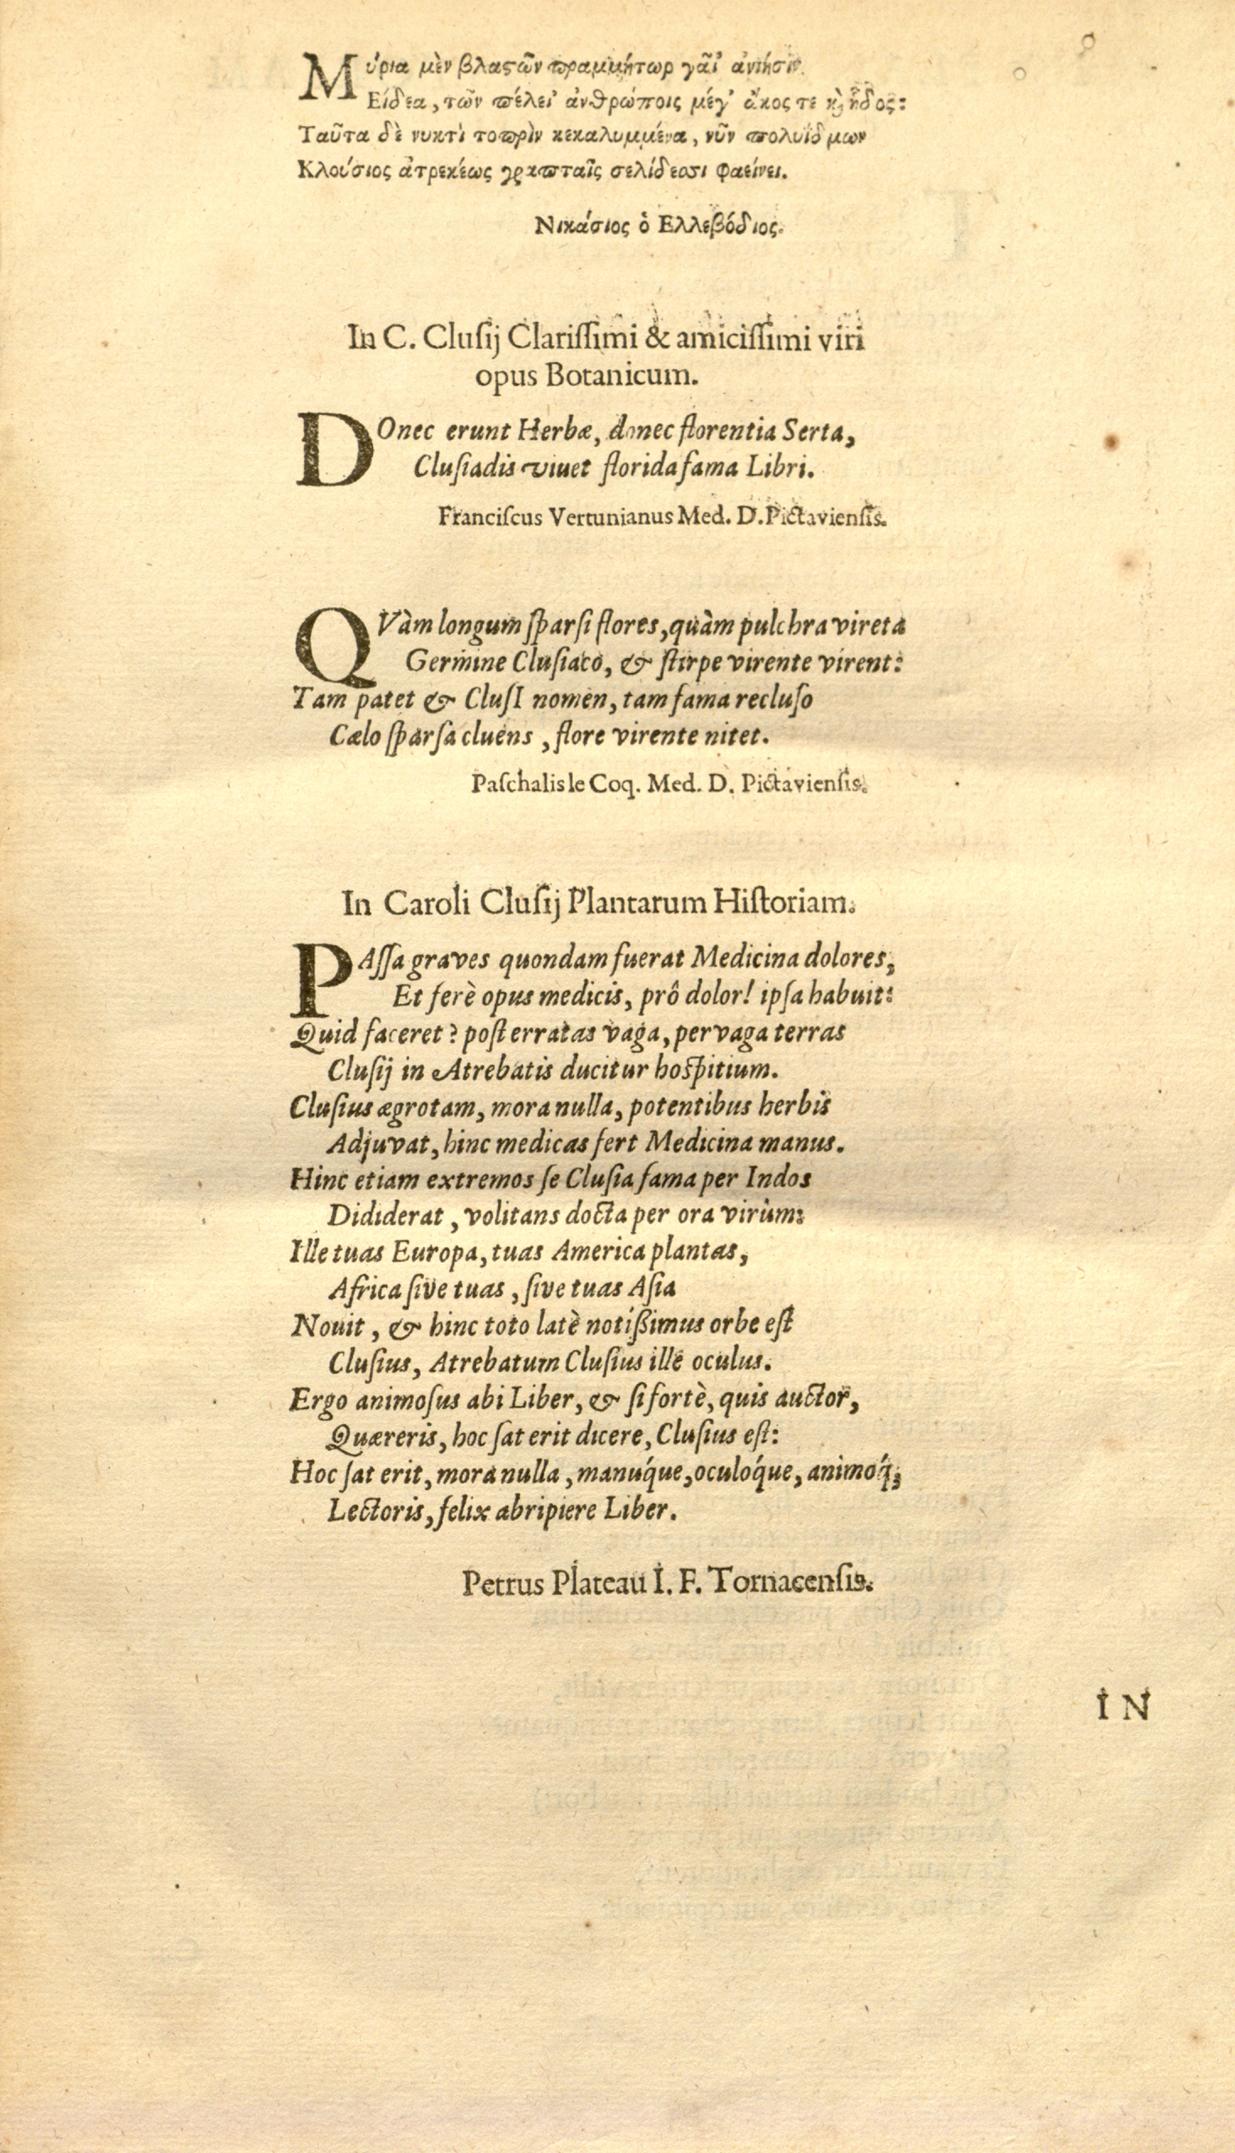 Μύρια μὲν βλαστῶν παμμήτωρ γαῖ' ἀνίησιν
Εἴδεα, τῶν πέλει ἀνθρώποις μέγ' ἄκος τε κỳ ἦδος:
Ταῦτα δὲ νυκτὶ τοπρὶν κεκαλυμμένα, νῦν πολυΐδμων
Κλούσιος ἀτρεκέως γραπταῖς σελίδεσσι φαείνει.
Νικάσιος ὁ Ελλεβόδιος.
In C. Cluſij Clariſſimi & amiciſſimi viri
opus Botanicum.
DOnec erunt Herbæ, donec florentia Serta,
Cluſiadis viuet florida fama Libri.
Franciſcus Vertunianus Med. D. Pictavienſis.
QVàm longum ſparſi flores, quàm pulchra vireta
Germine Cluſiaco, & ſtirpe virente virent:
Tam patet & CluſI nomen, tam fama recluſo
Cælo ſparſa cluens, flore virente nitet.
Paſchalis le Coq. Med. D. Pictavienſis.
In Caroli Cluſij Plantarum Hiſtoriam.
PAſſa graves quondam fuerat Medicina dolores,
Et ferè opus medicis, prô dolor! ipſa habuit:
Quid faceret? poſt erratas vaga, pervaga terras
Cluſij in Atrebatis ducitur hoſpitium.
Cluſius ægrotam, mora nulla, potentibus herbis
Adjuvat, hinc medicas fert Medicina manus.
Hinc etiam extremos ſe Cluſia fama per Indos
Dididerat, volitans docta per ora virûm:
Ille tuas Europa, tuas America plantas,
Africa ſive tuas, ſive tuas Aſia
Nouit, & hinc toto latè notißimus orbe eſt
Cluſius, Atrebatum Cluſius ille oculus.
Ergo animoſus abi Liber, & ſi fortè, quis auctor,
Quæreris, hoc ſat erit dicere, Cluſius eſt:
Hoc ſat erit, mora nulla, manuq́ue, oculoq́ue, animoq́;
Lectoris, felix abripiere Liber.
Petrus Plateau I. F. Tornacenſis.
IN